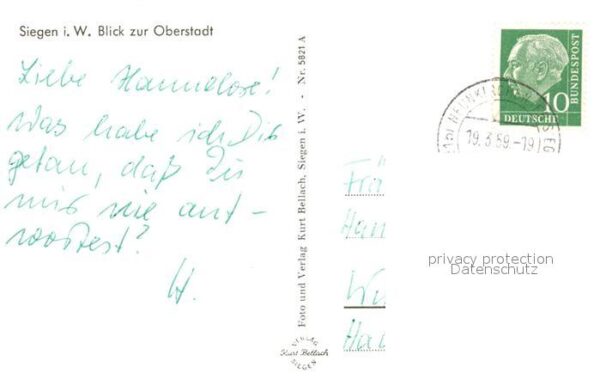 Siegen i. W. Blick zur Oberstadt
Liebe Hannelore!
Was habe ich Dir
getan, daß Du
mir nie ant-
wortest?
H.
Foto und Verlag Kurt Bellach, Siegen i. W. - Nr. 5821 A
VERLAG
Kurt Bellach
SIEGEN
10
DEUTSCHE
BUNDESPOST
19.3.59.-19
Frä
Han
privacy protection
Datenschutz